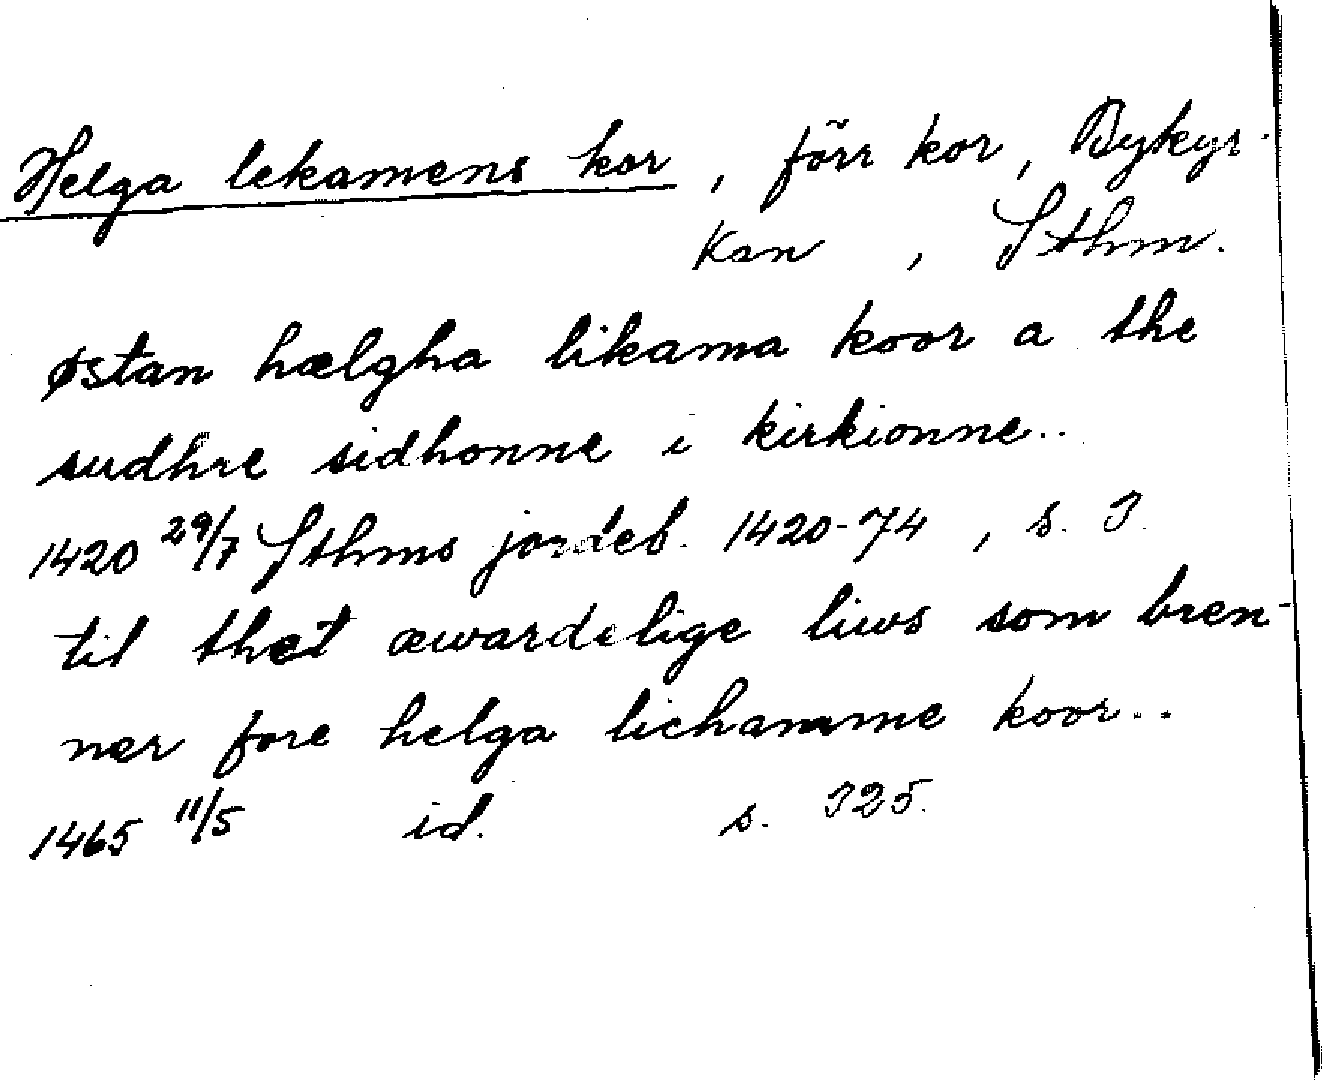 Helga lekamens kor, förr kor, Bykyr-
kan, Sthm.
østan hælgha likama koor a the
sudhre sidhonne i kirkionne..
1420 29/7 Sthms jordeb. 1420-74, s. 3.
til thet æwardelige liws som bren-
ner fore helga lichamme koor..
1465 11/5 id. s. 325.